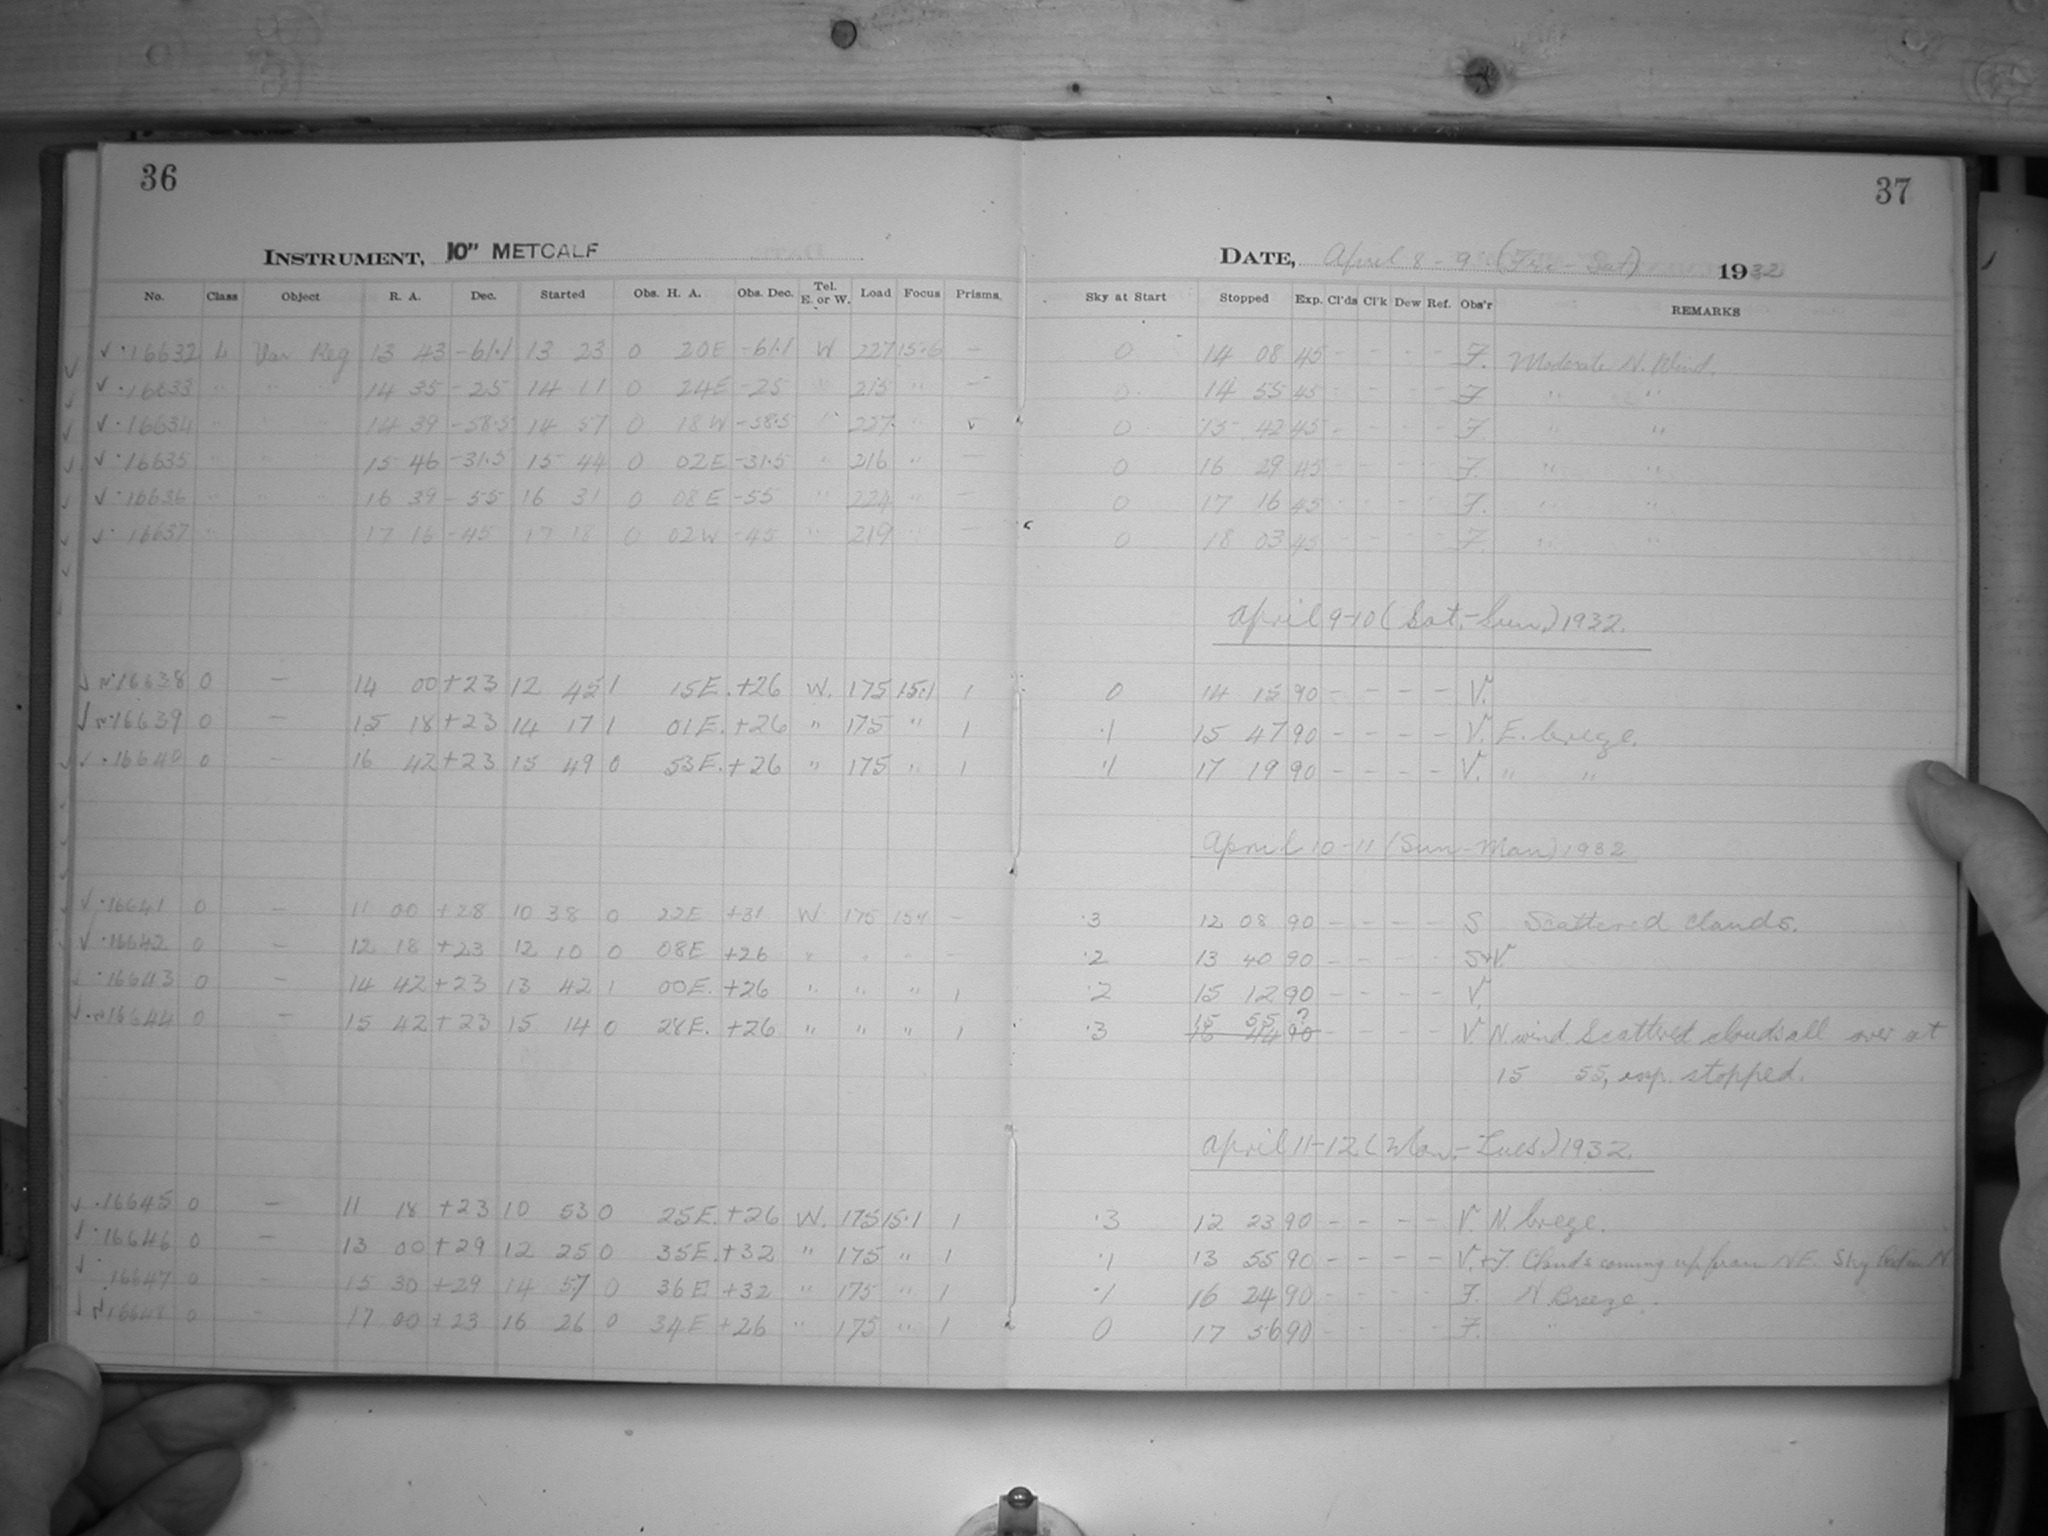 36
37
INSTRUMENT, 10" METCALF
DATE, April 8-9 (Fri-Sat) 1932
No. Class Object R. A. Dec. Started Obs. H. A. Obs. Dec. Tel. E. or W. Load Focus Prisms. Sky at Start Stopped Exp. Cl'ds Cl'k Dew Ref. Obs'r REMARKS
16632 L Var Reg 13 43 -61.1 13 23 0 20E -61.1 W 227 15.6 - 0 14 08 45 - - - - F. Moderate N. Wind.
16633 " " " 14 35 -25 14 11 0 24E -25 " 215 " - 0 14 55 45 - - - - F " "
16634 " " " 14 39 -58.5 14 57 0 18W -58.5 " 227 " 0 15 42 45 - - - - F. " "
16635 " " " 15 46 -31.5 15 44 0 02E -31.5 " 216 " - 0 16 29 45 - - - - F. " "
16636 " " " 16 39 -55 16 31 0 08E -55 " 224 " - 0 17 16 45 - - - - F. " "
16637 " 17 16 -45 17 18 0 02W -45 " 219 - 0 18 03 45 - - - - F. " "
April 9-10 (Sat.-Sun.) 1932.
16638 0 - 14 00 +23 12 45 1 15E. +26 W. 175 15.1 1 0 14 15 90 - - - - V.
16639 0 - 15 18 +23 14 17 1 01E. +26 " 175 " 1 .1 15 47 90 - - - - V. E. breeze.
16640 0 - 16 42 +23 15 49 0 53E. +26 " 175 " 1 .1 17 19 90 - - - - V. " "
April 10-11 (Sun-Mon) 1932
16641 0 - 11 00 +28 10 38 0 22E +31 W 175 15.1 - .3 12 08 90 - - - - S Scattered Clouds.
16642 0 - 12 18 +23 12 10 0 08E +26 " " " - .2 13 40 90 - - - - S+V.
16643 0 - 14 42 +23 13 42 1 00E. +26 " " " 1 .2 15 12 90 - - - - V.
15 55 ?
16644 0 - 15 42 +23 15 14 0 28E. +26 " " " 1 .3 16 44 90 - - - - V. N. wind. Scattered clouds all over at
15 55, exp. stopped.
April 11-12 (Mon.-Tues.) 1932.
16645 0 - 11 18 +23 10 53 0 25E. +26 W. 175 15.1 1 .3 12 23 90 - - - - V. N. breeze.
16646 0 - 13 00 +29 12 25 0 35E. +32 " 175 " 1 .1 13 55 90 - - - - V.+F. Clouds coming up from NE. Sky N
16647 0 - 15 30 +29 14 57 0 36E +32 " 175 " 1 .1 16 24 90 - - - - F. N. Breeze.
16648 0 - 17 00 +23 16 26 0 34E +26 " 175 " 1 0 17 56 90 - - - - F. "